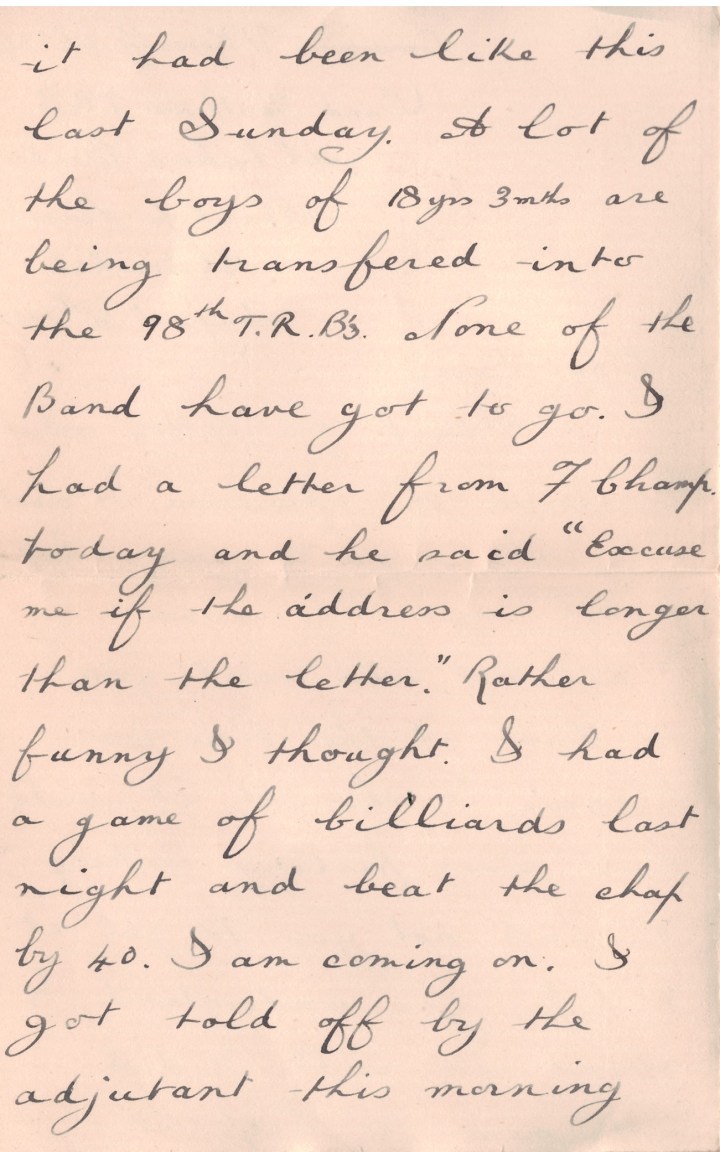 it had been like this
last Sunday. A lot of
the boys of 18yrs 3mths are
being transfered into
the 98th T.R.B's. None of the
Band have got to go. I
had a letter from F Champ.
today and he said "Excuse
me if the address is longer
than the letter." Rather
funny I thought. I had
a game of billiards last
night and beat the chap
by 40. I am coming on. I
got told off by the
adjutant this morning